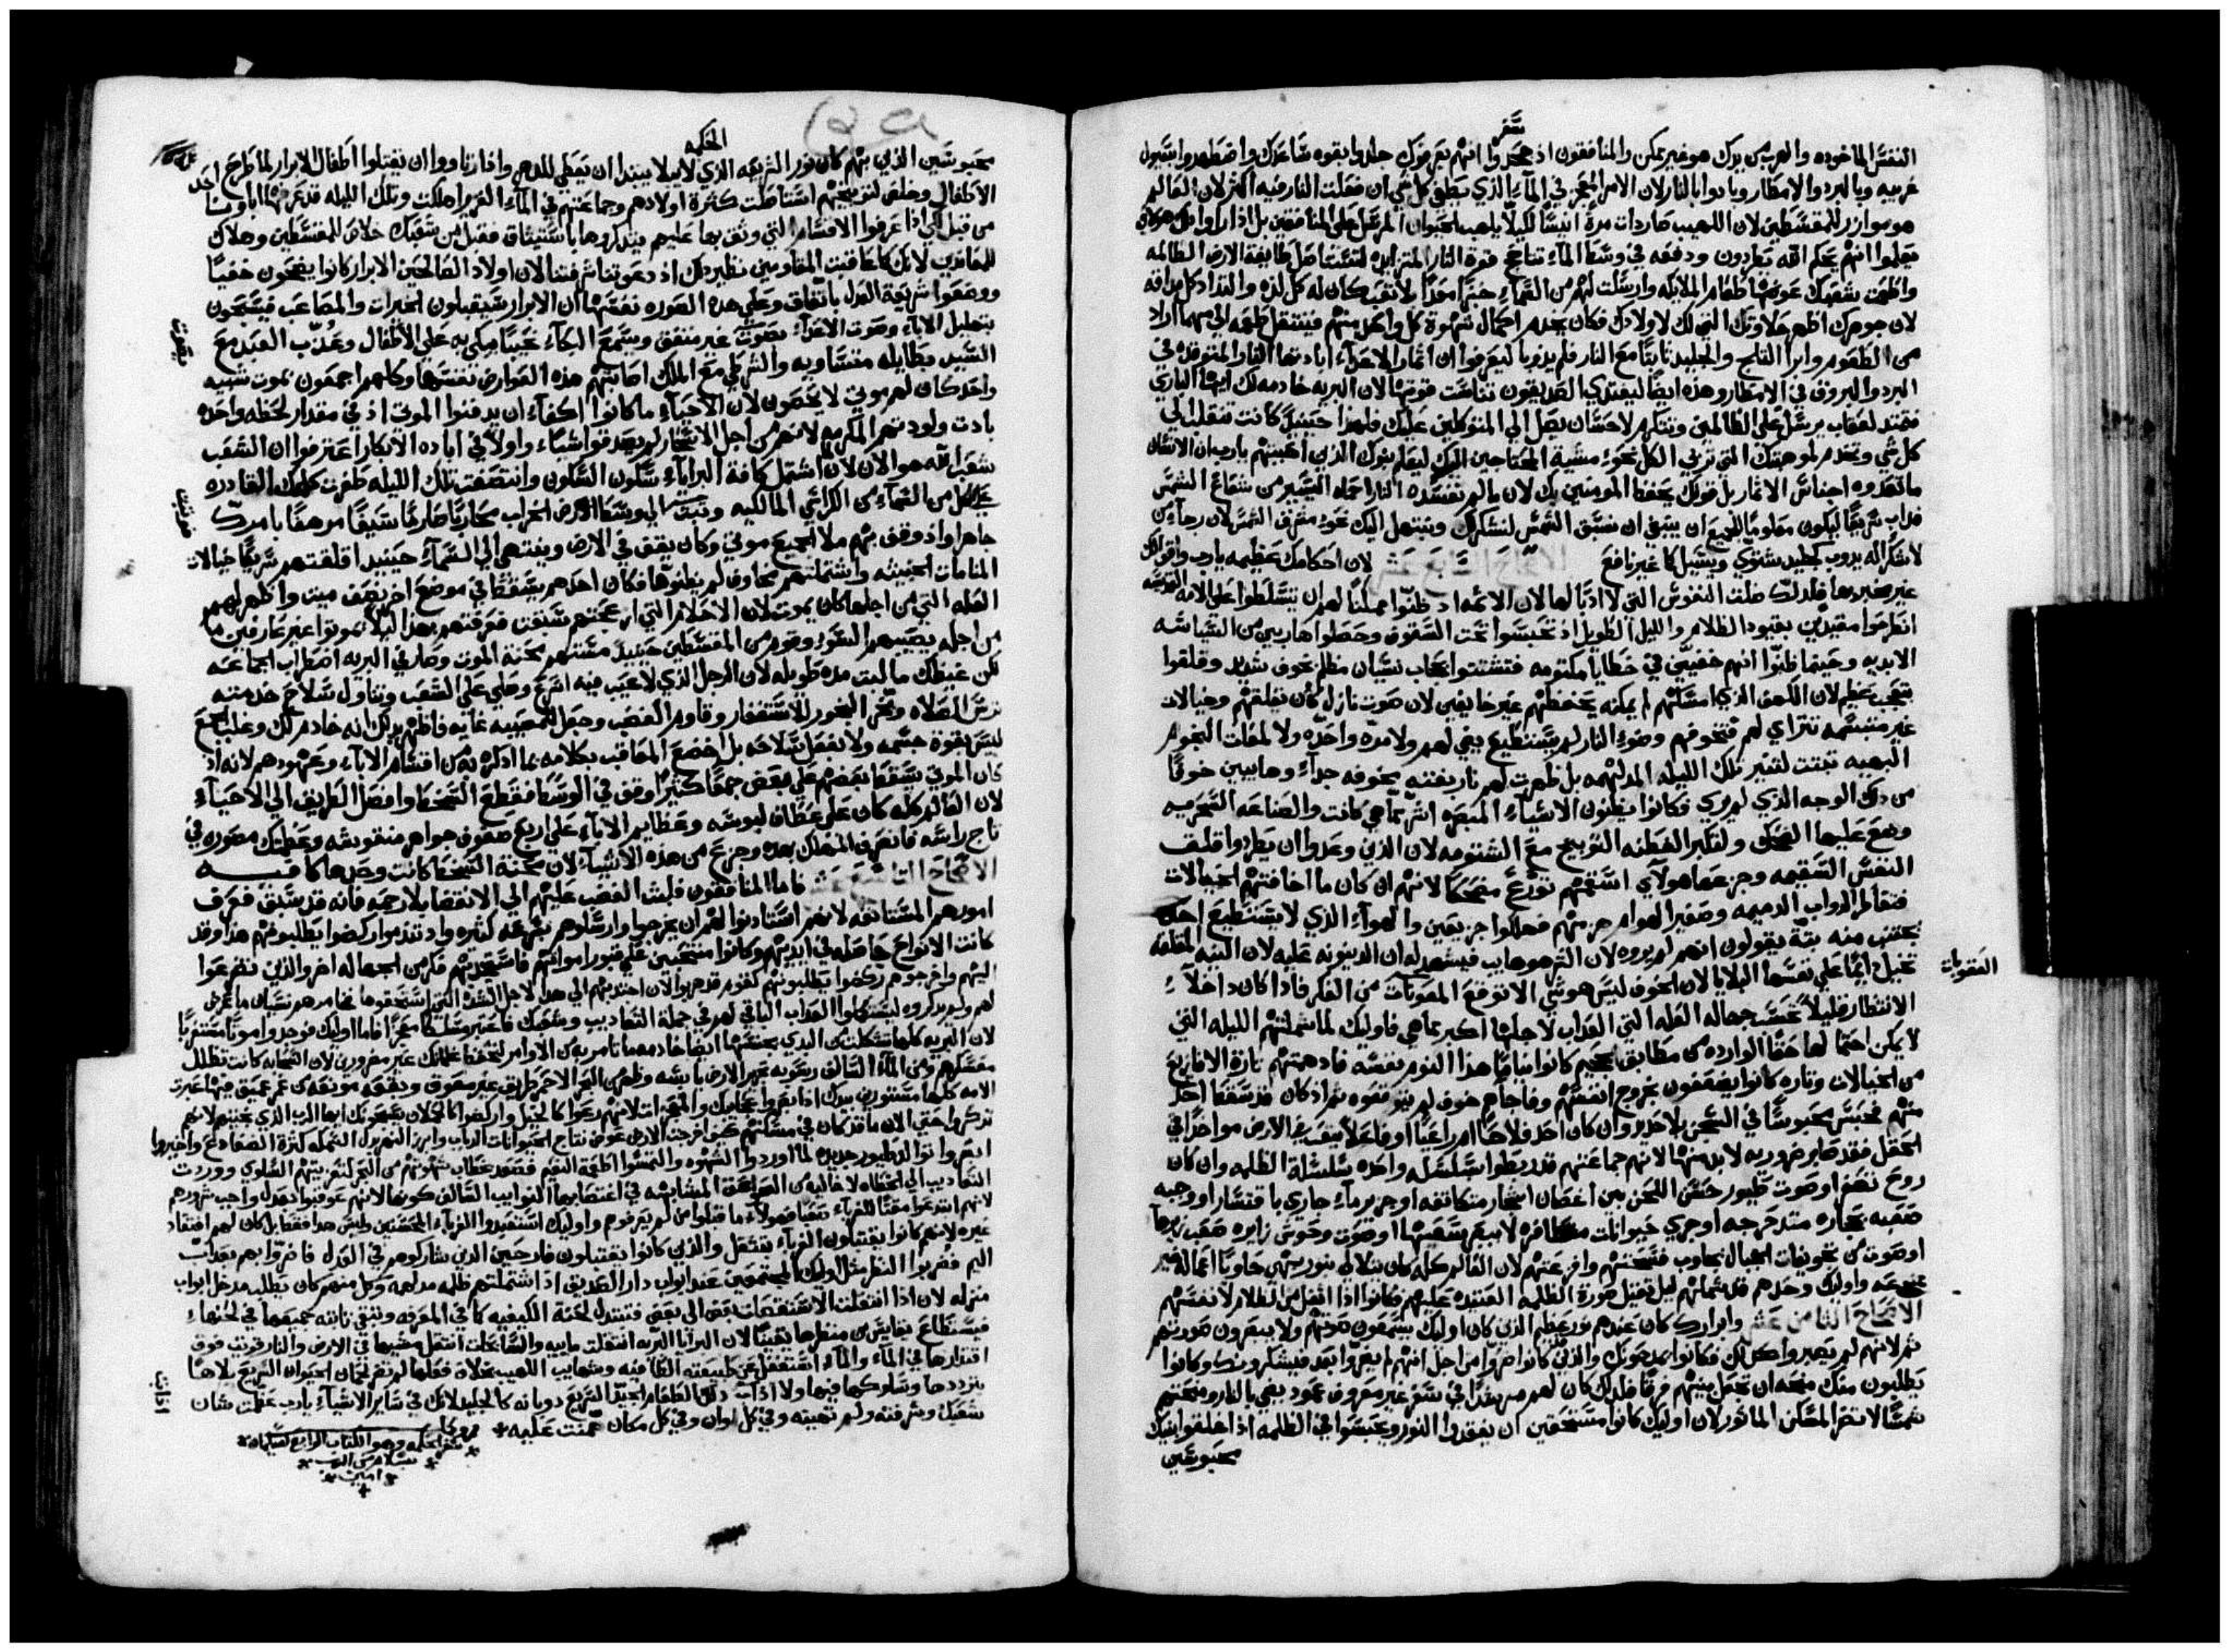 سفر
النفس الماخوده والهرب من يدك هو غير ممكن والمنافقون اذ جحدوا انهم يعرفوك جلدوا بقوه ساعدك واضطهدوا بسيول
غريبه وبالبرد والامطار وبادوا بالنار لان الامر المعجز في الماء الذي يطفي كل شي ان فعلت النار فيه اكثر لان العالم
هو موازر للمقسطين لان اللهيب صار ذات مرة انيسًا لكيلا يلهب الحيوان المرسل علي المنافقين بل اذا راوا
يعلموا انهم بحكم الله يطردون ودفعه في وسط الماء تتاجج قوة النار المتزايده لتستاصل طايفة الارض الظالمه
واطعمت شعبك عوضها طعام الملايكه وارسلت لهم من السماء خبزًا معدًا بلا تعب كان له كل لذه والتذاذ كل مذاقه
لان جوهرك اظهر حلاوتك التي لك لاولادك فكان يخدم احتمال شهوة كل واحد منهم فينتقل طعمه الي مهما اراد
من الطعوم وابرا الثلج والجليد ثابتًا مع النار فلم يذوبا ليعرفوا ان اثمار الاعداء ابادتها النار المتوقده في
البرد والبروق في الامطار وهذه ايضًا ليغتدي الصديقون تناست قوتها لان البريه خادمه لك ايها الباري
فتمتد لعقاب يرسل علي الظالمين وتتكرم لاحسان يصل الي المتوكلين عليك فلهذا حينيذ كانت تنقلب الي
كل شي وتخدم لموهبتك التي تربي الكل نحو مشية المحتاجين اليك ليعلم بنوك الذين احببتهم يارب ان الانسان
ما تغدوه اجناس الاثمار بل قولك يحفظ المومنين بك لان ما لم تفسده النار احماه اليسير من شعاع الشمس
فداب سريعًا ليكون معلومًا للجميع ان ينبغي ان نسبق الشمس لنشكرك ونبتهل اليك نحو مشرق الشمس لان رجاء من
لا شكر له يدوب كجليد شتوي ويسيل كماء غير نافع الاصحاح السابع عشر لان احكامك عظيمه يارب واقوالك
غير مخبر بها فلذلك ضلت النفوس التي لا ادبًا لها لان الاثمه اد ظنوا ممكنًا لهم ان يتسلطوا علي الامه القديسه
انطرحوا مقيدين بقيود الظلام والليل الطويل اذ تحبسوا تحت السقوف وحصلوا هاربين من السياسه
الابديه وحينما ظنوا انهم خفيين في خطايا مكتومه فتشتتوا بحجاب نسيان مظلم بخوف شديد وقلقوا
بتعجب عظيم لان الكهف الذي امسكهم لم يمكنه يحفظهم غير خايفين لان صوت نازل كان يقلقهم وخيالات
غير متبسمه تتراي لهم فتخوفهم وضوء النار لم يستطيع يضي لهم ولا مدة واحده ولا لمعات النجوم
البهيه تبتت لتنير تلك الليله المدلهمه بل ظهرت لهم نار بغتته بخوفه جداء وهايبين خوفًا
من ذلك الوجه الذي لم يري فكانوا يظنون الاشياء المبصره اشر مما هي كانت والصناعه السحريه
وضع عليها الضحك ولفخر الفطنه التوبيخ مع الشتومه لان الذين وعدوا ان يطردوا قلق
النفس السقيمه وجزعها هولاي اسقمهم تورع مضحكًا لانهم ان كان ما اخافتهم الخيالات
فتقاطر الدواب الدميمه وصفير الهوام جزعتهم فهلكوا جزيعين والهواء الذي لا يستطيع احد
يجتنب منه بتة يقولون انهم لم يروه لان الشر هو هايب فيشهد له ان الدينونه عليه لان النيه القلقه
تخيل دايمًا علي نفسها البلايا لان الخوف ليس هو شي الا توقع المعونات من الفكر فاذا كان داخلاء
العقوبات
الانتظار قليلًا تحسب جهالة العله التي العداب لاجلها اكبر مما هي فاوليك لما شملتهم الليله التي
لا يمكن احتمالها حقًا الوارده من مطابق الجحيم كانوا نيامًا هذا النوم نفسه فادهمتهم تارة الافازيع
من الخيالات وتاره كانوا يضعفون بخروج انفسهم وفاجاهم خوف لم يتوقعوه ثم اذ كان قد سقط احد
منهم فحبس محبوسًا في السجن بلا حديد وان كان احد فلاحًا ام راعيًا او فاعلًا يتعب في الارض مواخذًا في
الحقل فقد صابر ضروريه لا بد منها لانهم جماعتهم قد ربطوا بسلسله واحده سلسلة الظلمه وان كان
روح تصفر او صوت طيور حسن اللحن بين اغصان اشجار متكاثفه او جزير ماء جاري باقتسار او وجبه
صعبه بحجاره متدحرجه او جري حيوانات متطافره لا يبصر سعيتها او صوت وحوش زايره صعب زيرها
او صوت من تجويفات الجبال يجاوب فتسختهم وافزعتهم لان العالم كله كان يتلالي بنور بهي حاويًا اعماله غير
ممتنعه واوليك وحدهم قد شملتهم ليل ثقيل صورة الظلمه العتيده عليهم فكانوا اذا اثقل من الظلام لانفسهم
الاصحاح الثامن عشر وابرارك كان عندهم نور عظيم الذي كان اوليك يسمعون صوتهم ولا يبصرون صورتهم
ثم لانهم لم يصيروا كذلك فكانوا يمدحونك والذين كانوا ضروا من اجل انهم لم يضروا بعد فيشكرونك وكانوا
يطلبون منك منحه ان تجعل بينهم فرقًا فلذلك كان لهم مرشدًا في سفر غير معروف عمود يضي بالنار ومنحتهم
شمسًا لا تضر المسكن الماثور لان اوليك كانوا مستحقين ان يفقدوا النور ويحبسوا في الظلمه اذ اغلقوا بنيك
محبوسين
الحكمه
محبوسين الذين بهم كان نور الشريعه الذي لا يبلا يبتدا ان يعطي للدهر واذا ارتاووا ان يقتلوا اطفال الابرار لما طرح احد
الاطفال وخلص لتوبيخهم استاصلت كثرة اولادهم وجماعتهم في الماء الغزير اهلكت وتلك الليله قد عرفها اباونا
من قبل لكي اذا عرفوا الاقسام التي وثق بها عليهم يتذكروها باستيثاق فقبل من شعبك خلاص للمقسطين وهلاك
للمعاندين لانك كما عاقبت المقاومين نظير ذلك اذ دعوتنا شرفتنا لان اولاد الصالحين الابرار كانوا يضحون خفيًا
ووضعوا شريعة العدل باتفاق وعلي هذه الصوره نفسها ان الابرار سيقبلون الخيرات والمصاعب فيسبحون
بتهليل الاباء وصوت الاعداء بصوت غير متفق ويسمع البكاء نحيبًا يبكي به علي الاطفال وعذب العبد مع
السيد بطايله متساويه والشرطي مع الملك اصابتهم هذه العوارض نفسها وكلهم اجمعون بموت شبيه
واحد كان لهم موتي لا يحصون لان الاحياء ما كانوا اكفاء ان يدفنوا الموتي اذ في مقدار لحظه واحده
بادت ولودتهم المكرمه لانهم من اجل الاسحار لم يصدقوا شياء واولًا في اباده الابكار اعترفوا ان الشعب
شعب الله هو الان لان اشتمل كافة البرايا سكون السكون وانتصفت تلك الليله طفرت كلمتك القادره
علي كل من السماء من الكراسي المالكيه وتبت الي وسط الارض الخراب محاربًا صارمًا سيفًا مرهفًا بامرك
جاهرا واذ وقف بهم ملا الجميع موتي وكان يقف في الارض وينتهي الي السماء حينيذ اقلقتهم سريعًا خيالات
المنامات الخبيثه واشتملتهم مخاوف لم يظنوها فكان احدهم يسقط في موضع اخر نصف ميت واظهر لهم
العله التي من اجلها كان يموت لان الاحلام التي ازعجتهم سبقت فعرفتهم بهذا ليلًا يموتوا غير عارفين ما
من اجله يصيبهم السوء وقوم من المقسطين حينيذ مستهم محنة الموت وصار في البريه اضطراب الجماعه
لكن غيظك ما لبث مده طويله لان الرجل الذي لا عيب فيه اسرع وصلي علي الشعب وتناول سلاح خدمته
ترس الصلاه وبخر البخور للاستغفار وقاوم الغضب وجعل للمصيبه غايه فاظهر بذلك انه خادم لك وغلب الجمع
ليس بقوة جسمه ولا بفعل سلاحه بل اخضع المعاقب بكلامه بما اذكره به من اقسام الاباء وعهودهم لانه اذ
كان الموتي يسقط بعضهم علي بعض جمعًا كثيرًا وقف في الوسط فقطع السخط وافصل الطريق الي الاحياء
لان العالم كله كان علي عطاف لبوسه وعظايم الاباء علي اربع صفوف جواهر منقوشه وعظمتك مصوره في
تاج راسه فانصرف المهلك بهذه وجزع من هذه الاشياء لان محنة السخط كانت وحدها كافيه
الاصحاح التاسع عشر فاما المنافقون فلبث الغضب عليهم الي الانقضا بلا رحمه فانه قد سبق فعرف
امورهم المستانفه لانهم استاذنوا لهم ان يخرجوا وارسلوهم بسرعه كثيره واد تندموا ركضوا يطلبونهم هذا وقد
كانت الانواح حاصله في ايديهم وكانوا منتحبين علي قبور امواتهم فاستجدبتهم فكر من الجهاله اخر والذين تضرعوا
اليهم واخرجوهم ركضوا يطلبونهم كقوم قد هربوا لان اجتدبتهم الي هذا لاجل الشده التي استحقوها نجا مرهم نسيان ما عرض
لهم ولم يدكروه ليستكملوا العداب الباقي لهم في جملة التعاديب وشعبك فاعبر مسلكًا معجزًا فاما اوليك فوجدوا موتًا مستغربًا
لان البريه كلها شكلت من البدي بجنسها ايضًا خادمه ما تامر به من الاوامر لتحفظ غلمانك غير مضرورين لان السحابه كانت تظلل
معسكرهم ومن الماء السالف رؤيه ظهر الارض يابسه وظهر من البحر الاحمر طريق غير معوق وبقعه مونقه من غمر عميق فيها عبرت
الامه كلها مستترين بيدك اذ ابصروا عجايبك والمعجزات لانهم رعوا كالخيل وارتكضوا كالحملان يسبحونك ايها الرب الذي نجيتهم لانهم
تدكروا حتي الان ما قد كان في مسكنهم كيف اخرجت الارض عوض نتاج الحيوانات الدباب وابرز النهر بدل السمكه كثرة الضفادع واخيروا
ابصروا تولد طيور جديده لما اوردوا الشهوه والتمسوا اطعمة النعيم فصعد خطاب شهوتهم من البحر لتعزيتهم السلوي ووردت
التعاديب الي الخطاه لا خاليه من الصواعق المتشابهه في اغتصابها النوايب السالف كونها لانهم عوقبوا بعدل واجب شرورهم
لانهم ابتدعوا مقتًا للغرباء صعبًا فهولاء ما قبلوا من لم يعرفوهم واوليك استعبدوا الغرباء المحسنين وليس هذا فقط بل كان لهم افتقاد
غيره لانهم كانوا يقتبلون الغرباء بتثقل والذين كانوا يقتبلون فارحين الذين شاركوهم في العدل فاضروا بهم بعداب
اليم فضربوا النظر مثل اوليك المجتمعين عند ابواب دار الصديق اذ اشتملتهم ظلمه مدلهمه وكل منهم كان يطلب مدخل ابواب
منزله لان اذا انتقلت الاستقصات بعض الي بعض فتتبدل لحنة الكيفيه كما في المعزفه وتبقي ثابته جميعها في لحنها
فيستطاع يقايس من منظرها يقينًا لان البرايا البريه انتقلت ماييه والسابحات انتقل مشيها في الارض والنار قويت فوق
اقتدارها في الماء والماء استغفل عن طبيعته الطافيه ومنهايب اللهيب بخلاف فعلها لم تضر لحمان الحيوان السريع بلاها
يترددها وسلوكها فيها ولا اذابت ذلك الطعام الجيد السريع ذوبانه كالجليد لانك في ساير الاشياء يارب عظمت شان
شعبك وشرفته ولم تهينه وفي كل اوان وفي كل مكان همنت عليه
سفر الحكمه وهو الكتاب الرابع لسليمان
بسلام من الرب
امين